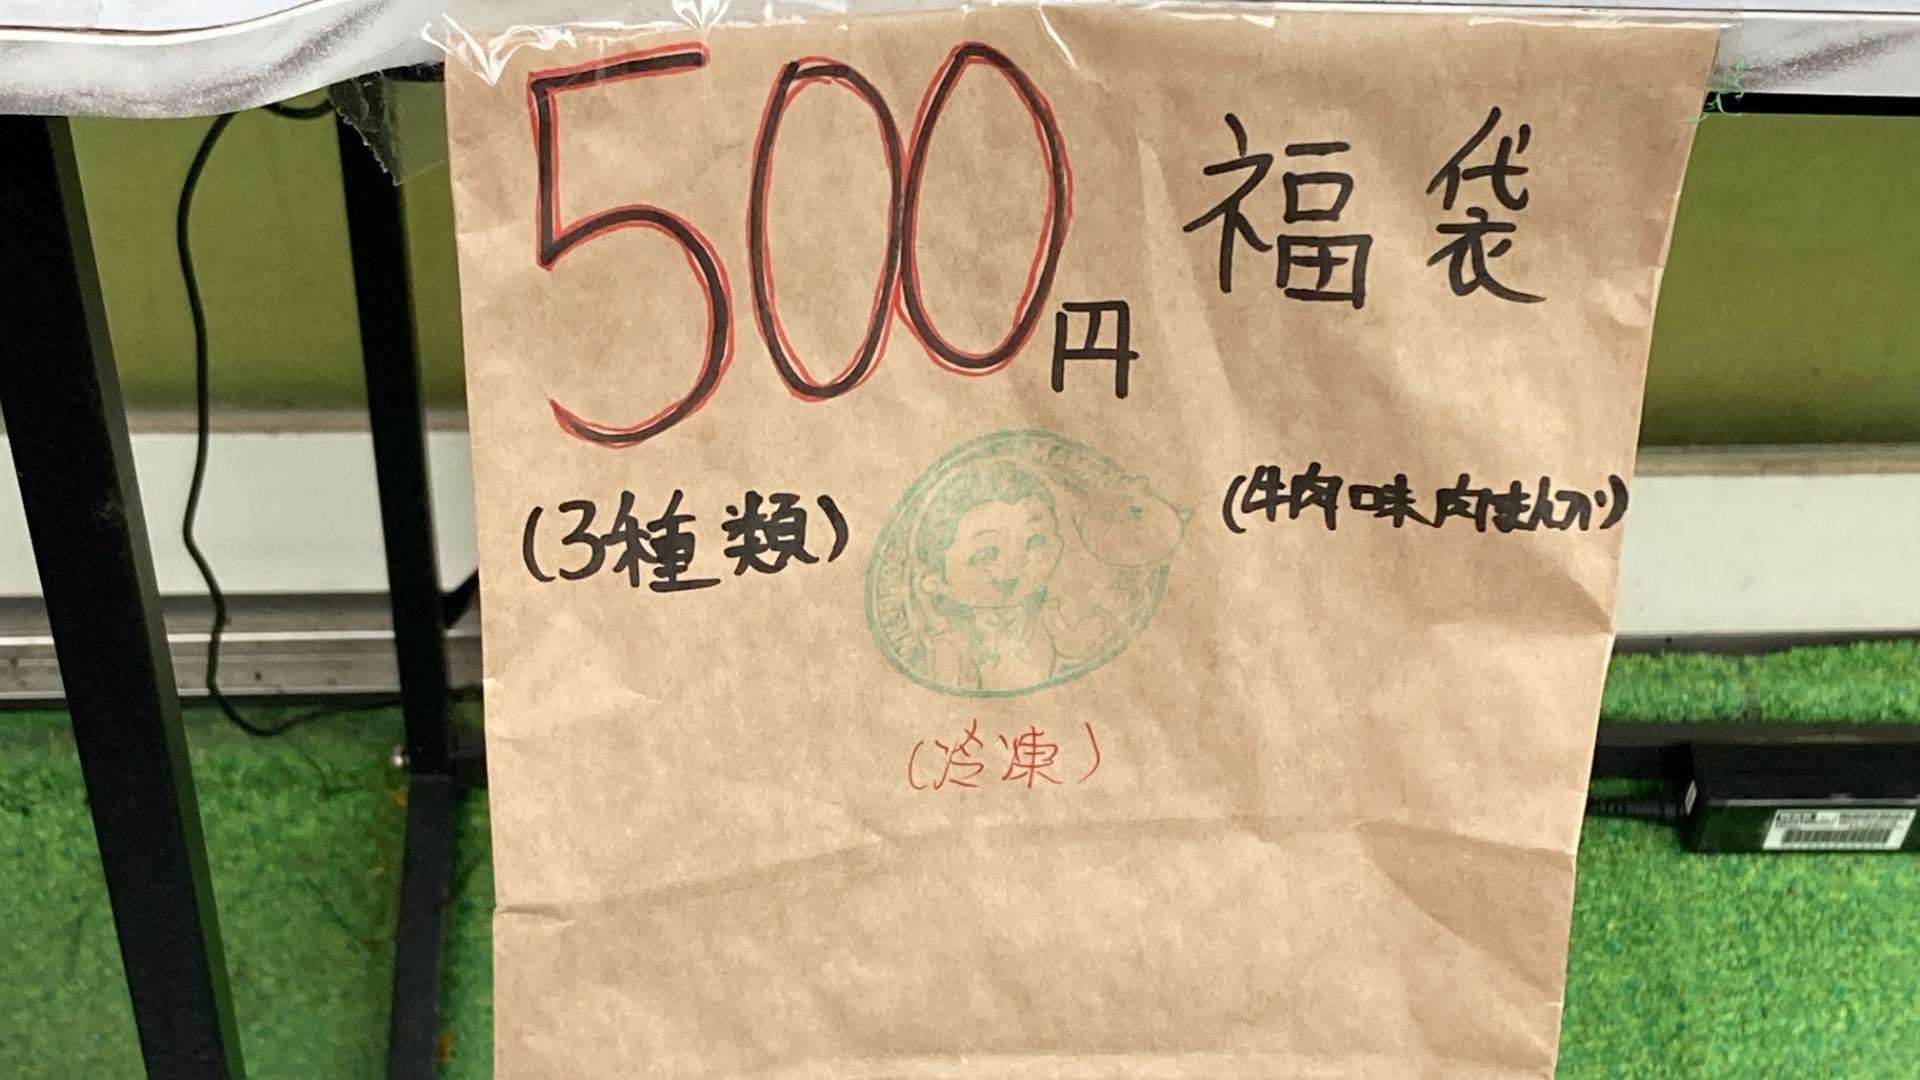 500円 福袋
(3種類)
(牛肉味肉まん入り)
(冷凍)